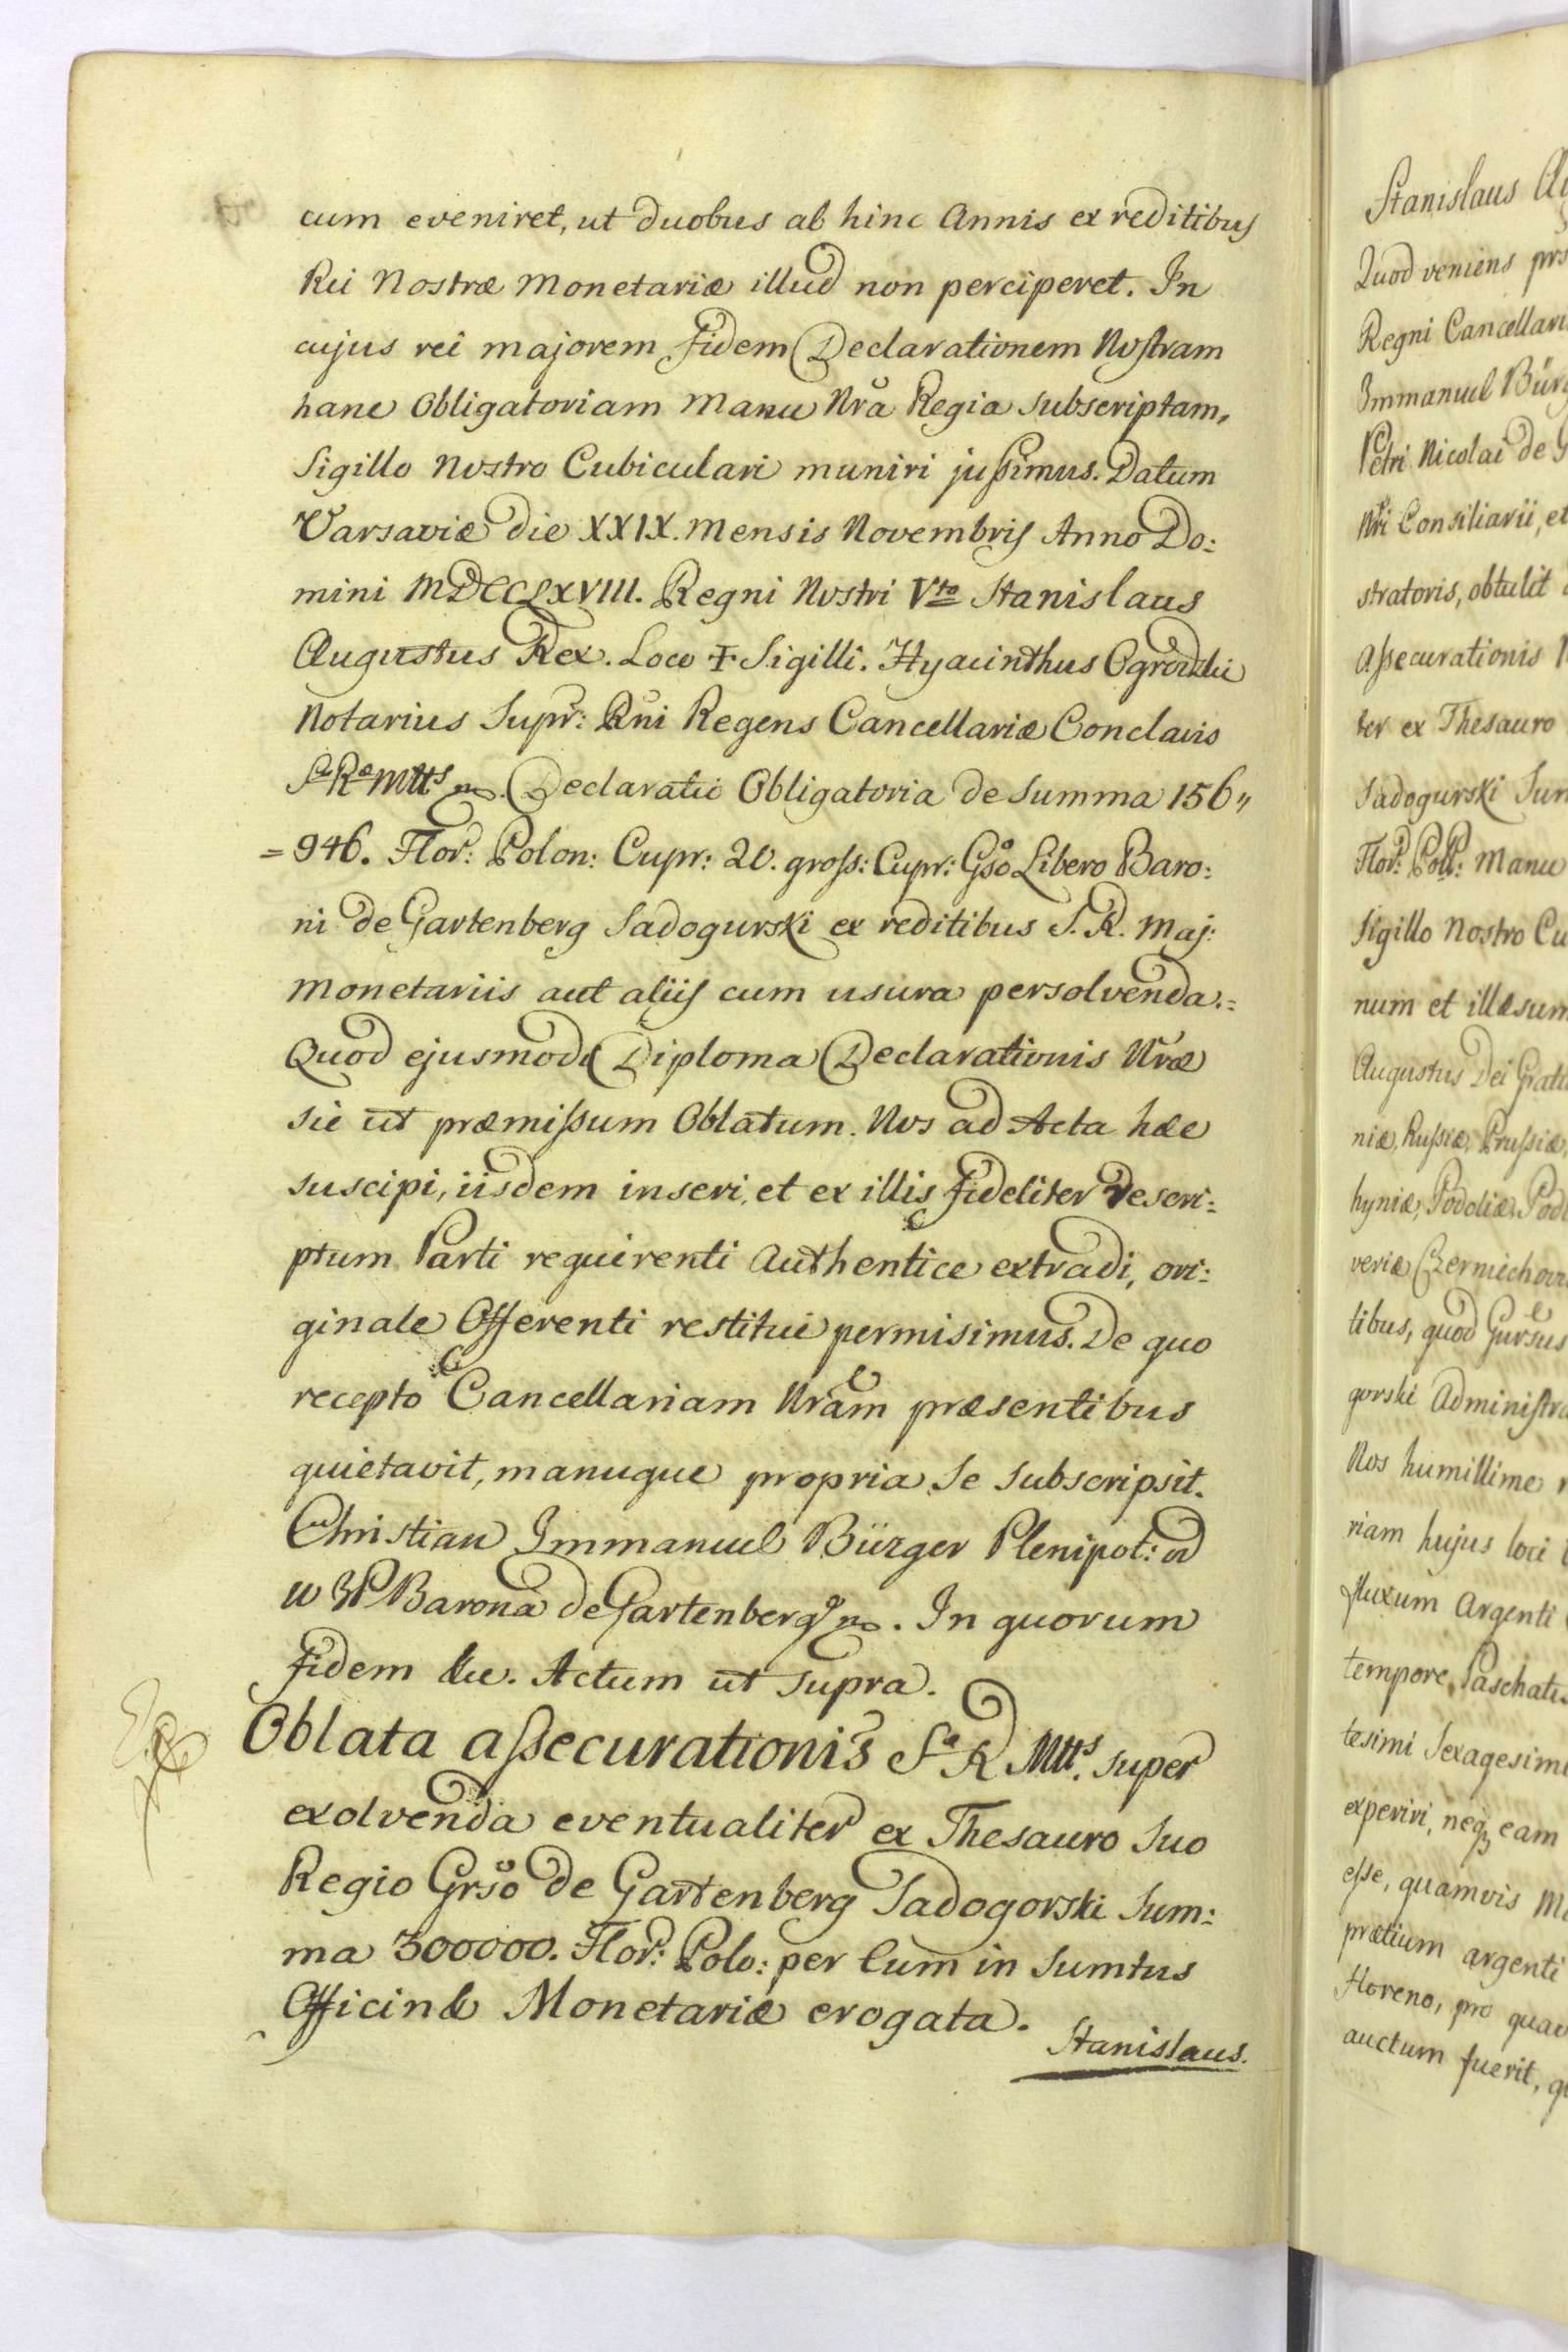 cum eveniret, ut duobus ab hinc Annis ex reditibus
Rei Nostræ Monetariæ illud non perciperet. In
cujus rei majorem fidem Declarationem Nostram
hanc Obligatoriam Manu Nrã Regia subscriptam,
Sigillo Nostro Cubiculari muniri jussimus. Datum
Varsaviæ die XXIX. Mensis Novembris Anno Do:
mini MDCCLXVIII. Regni Nostri Vto Stanislaus
Augustus Rex. Loco ✝ Sigilli. Hyacinthus Ogrodzki
Notarius Supr: Rñi Regens Cancellariæ Conclavis
Sæ Ræ Mtts mp. Declaratio Obligatoria de Summa 156„
=946. Flor: Polon: Cupr: 20. gross: Cupr: Gso Libero Baro:
ni de Gartenberg Sadogurski ex reditibus S. R. Maj:
Monetariis aut aliis cum usura persolvenda.=
Quod ejusmodi Diploma Declarationis Nræ
sic ut præmissum Oblatum. Nos ad Acta hæc
suscipi, iisdem inseri, et ex illis fideliter descri:
ptum Parti requirenti Authentice extradi, ori:
ginale Offerenti restitui permisimus. De quo
recepto Cancellariam Nram præsentibus
quietavit, manuque propria se subscripsit.
Christian Immanuel Bürger Plenipot: od
W JP Barona de Gartenberg mp. In quorum
fidem &c. Actum ut supra.
Oblata assecurationis Sæ R Mtts. super
exolvenda eventualiter ex Thesauro Suo
Regio Grso de Gartenberg Sadogorski Sum:
ma 300000. Flor: Polo: per Eum in Sumtus
Officinæ Monetariæ erogata.
Stanislaus.
Stanislaus
Quod veniens
Regni Cancellari
Immanuel Bürg
Petri Nicolai de G
Nri Consiliarii, et
stratoris, obtulit
Assecurationis
ter ex Thesauro
Sadogurski Sum
Flor: Poll: Manu
Sigillo Nostro Cu
num et illæsum
Augustus Dei Grati
niæ, Russiæ, Prussiæ,
hyniæ, Podoliæ, Podl
veriæ Czerniechov
tibus, quod Gursus
gorski Administra
Nos humillime
riam hujus loci
fluxum Argenti
tempore Paschatis
tesimi Sexagesimi
experiri, neq eam
esse, quamvis
prætium argenti
Floreno, pro quav
auctum fuerit,